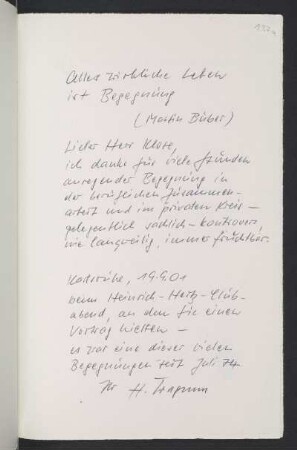 Alles wirkliche Leben
ist Begegnung
(Martin Buber)
Lieber Herr Klose,
ich danke für viele Stunden
anregender Begegnung in
der beruflichen Zusammen-
arbeit und im privaten Kreis –
gelegentlich sachlich-kontrovers,
nie langweilig, immer fruchtbar.
Karlsruhe, 19.9.01
beim Heinrich-Hertz-Club-
abend, an dem Sie einen
Vortrag hielten –
es war eine dieser vielen
Begegnungen seit Juli 74
Ihr H.